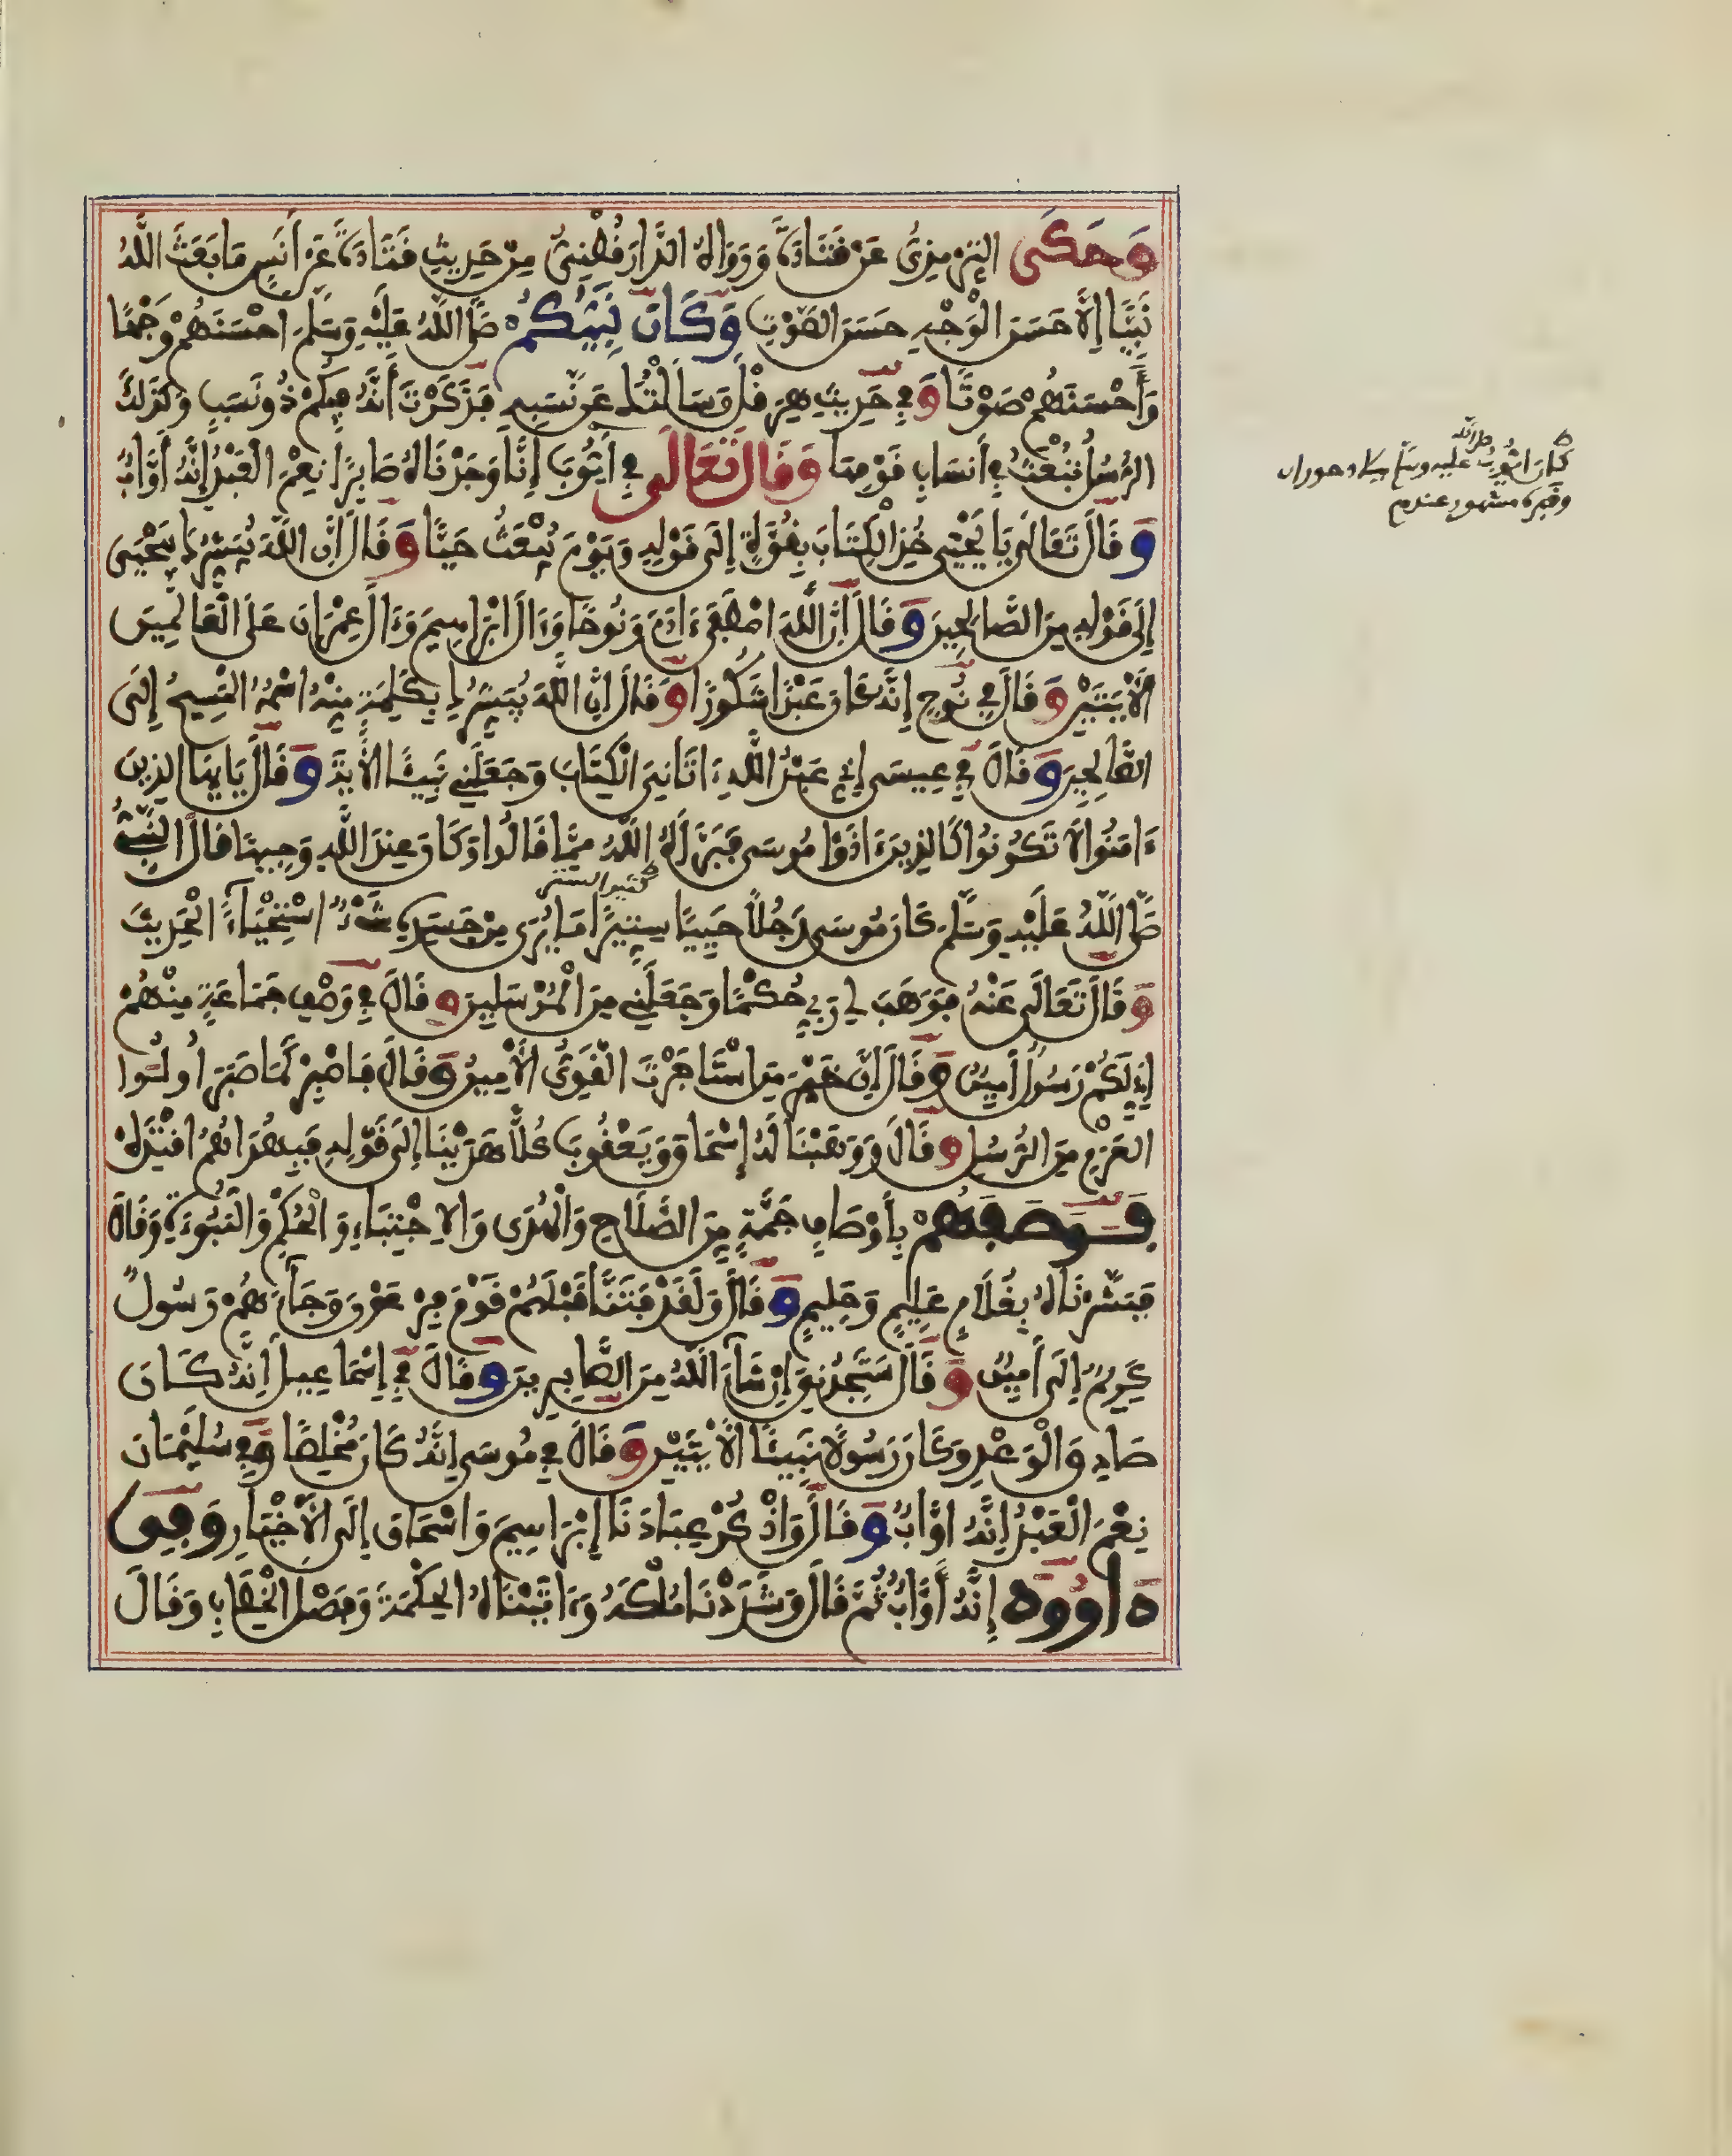 وَحَكَى التِّرْمِذِيُّ عَنْ قَتَادَةَ وَرَوَاهُ الدَّارَقُطْنِيُّ مِنْ حَدِيثِ قَتَادَةَ عَنْ أَنَسٍ مَا بَعَثَ اللَّهُ
نَبِيًّا إِلَّا حَسَنَ الْوَجْهِ حَسَنَ الصَّوْتِ وَكَانَ نَبِيُّكُمْ صَلَّى اللَّهُ عَلَيْهِ وَسَلَّمَ احْسَنَهُمْ وَجْهًا
وَأَحْسَنَهُمْ صَوْتًا وَفِي حَدِيثِ هِرَقْلَ وَسَأَلْتُكَ عَنْ نَسَبِهِ فَذَكَرْتَ أَنَّهُ فِيكُمْ ذُو نَسَبٍ وَكَذَلِكَ
الرُّسُلُ تُبْعَثُ فِي أَنسَابِ قَوْمِهَا وَقَالَ تَعَالَى فِي أَيُّوبَ إِنَّا وَجَدْنَاهُ صَابِرًا نِعْمَ الْعَبْدُ إِنَّهُ أَوَّابٌ
وَقَالَ تَعَالَى يَا يَحْيَى خُذِ الْكِتَابَ بِقُوَّةٍ إِلَى قَوْلِهِ وَيَوْمَ يُبْعَثُ حَيًّا وَقَالَ أَنَّ اللَّهَ يُبَشِّرُكَ بِيَحْيَى
إِلَى قَوْلِهِ مِنَ الصَّالِحِينَ وَقَالَ إِنَّ اللَّهَ اصْطَفَى ءَادَمَ وَنُوحًا وَءَالَ ابْرَاهِيمَ وَءَالَ عِمْرَانَ عَلَى الْعَالَمِينَ
الْآيَتَيْنِ وَقَالَ فِي نُوحٍ إِنَّهُ كَانَ عَبْدًا شَكُورًا وَقَالَ إِنَّ اللَّهَ يُبَشِّرُكِ بِكَلِمَةٍ مِنْهُ اسْمُهُ الْمَسِيحُ إِلَى
الصَّالِحِينَ وَقَالَ فِي عِيسَى إِنِّي عَبْدُ اللَّهِ ءَاتَانِيَ الْكِتَابَ وَجَعَلَنِي نَبِيئًا الْآيَةَ وَقَالَ يَا يُّهَا الَّذِينَ
ءَامَنُوا لَا تَكُونُوا كَالَّذِينَ ءَاذَوْا مُوسَى فَبَرَّأَهُ اللَّهُ مِمَّا قَالُوا وَكَانَ عِنْدَ اللَّهِ وَجِيهًا قَالَ النَّبِيُّ
كثير الستر
صَلَّى اللَّهُ عَلَيْهِ وَسَلَّمَ كَانَ مُوسَى رَجُلًا حَيِيًّا سِتِّيرًا مَا يُرَى مِنْ جَسَدِهِ شَيْءٌ اسْتِحْيَاءً الْحَدِيثَ
وَقَالَ تَعَالَى عَنْهُ فَوَهَبَ لِي رَبِّي حُكْمًا وَجَعَلَنِي مِنَ الْمُرْسَلِينَ وَقَالَ فِي وَصْفِ جَمَاعَةٍ مِنْهُمْ
إِنِّي لَكُمْ رَسُولٌ أَمِينٌ وَقَالَ إِنَّ خَيْرَ مَنِ اسْتَاجَرْتَ الْقَوِيُّ الْأَمِينُ وَقَالَ فَاصْبِرْ كَمَا صَبَرَ أُولُوا
الْعَزْمِ مِنَ الرُّسُلِ وَقَالَ وَوَهَبْنَا لَهُ إِسْحَاقَ وَيَعْقُوبَ كُلًّا هَدَيْنَا إِلَى قَوْلِهِ فَبِهُدَاهُمُ اقْتَدِهْ
فَوَصَفَهُمْ بِأَوْصَافٍ جَمَّةٍ مِنَ الصَّلَاحِ وَالْهُدَى وَالِاجْتِبَاءِ وَالْحُكْمِ وَالنُّبُوءَةِ وَقَالَ
فَبَشَّرْنَاهُ بِغُلَامٍ عَلِيمٍ وَحَلِيمٍ وَقَالَ وَلَقَدْ فَتَنَّا قَبْلَهُمْ قَوْمَ فِرْعَوْنَ وَجَاءَهُمْ رَسُولٌ
كَرِيمٌ إِلَى أَمِينٌ وَقَالَ سَتَجِدُنِي إِنْ شَاءَ اللَّهُ مِنَ الصَّابِرِينَ وَقَالَ فِي إِسْمَاعِيلَ إِنَّهُ كَانَ
صَادِقَ الْوَعْدِ وَكَانَ رَسُولًا نَبِيئًا الْآيَتَيْنِ وَقَالَ فِي مُوسَى إِنَّهُ كَانَ مُخْلِصًا وَفِي سُلَيْمَانَ
نِعْمَ الْعَبْدُ إِنَّهُ أَوَّابٌ وَقَالَ وَاذْكُرْ عِبَادَنَا إِبْرَاهِيمَ وَاسْحَاقَ إِلَى الْأَخْيَارِ وَفِي
دَاوُودَ إِنَّهُ أَوَّابٌ ثُمَّ قَالَ وَشَدَدْنَا مُلْكَهُ وَءَاتَيْنَاهُ الْحِكْمَةَ وَفَصْلَ الْخِطَابِ وَقَالَ
كان ايوب صلى الله عليه وسلم ببلاد حوران
وقبره مشهور عندهم